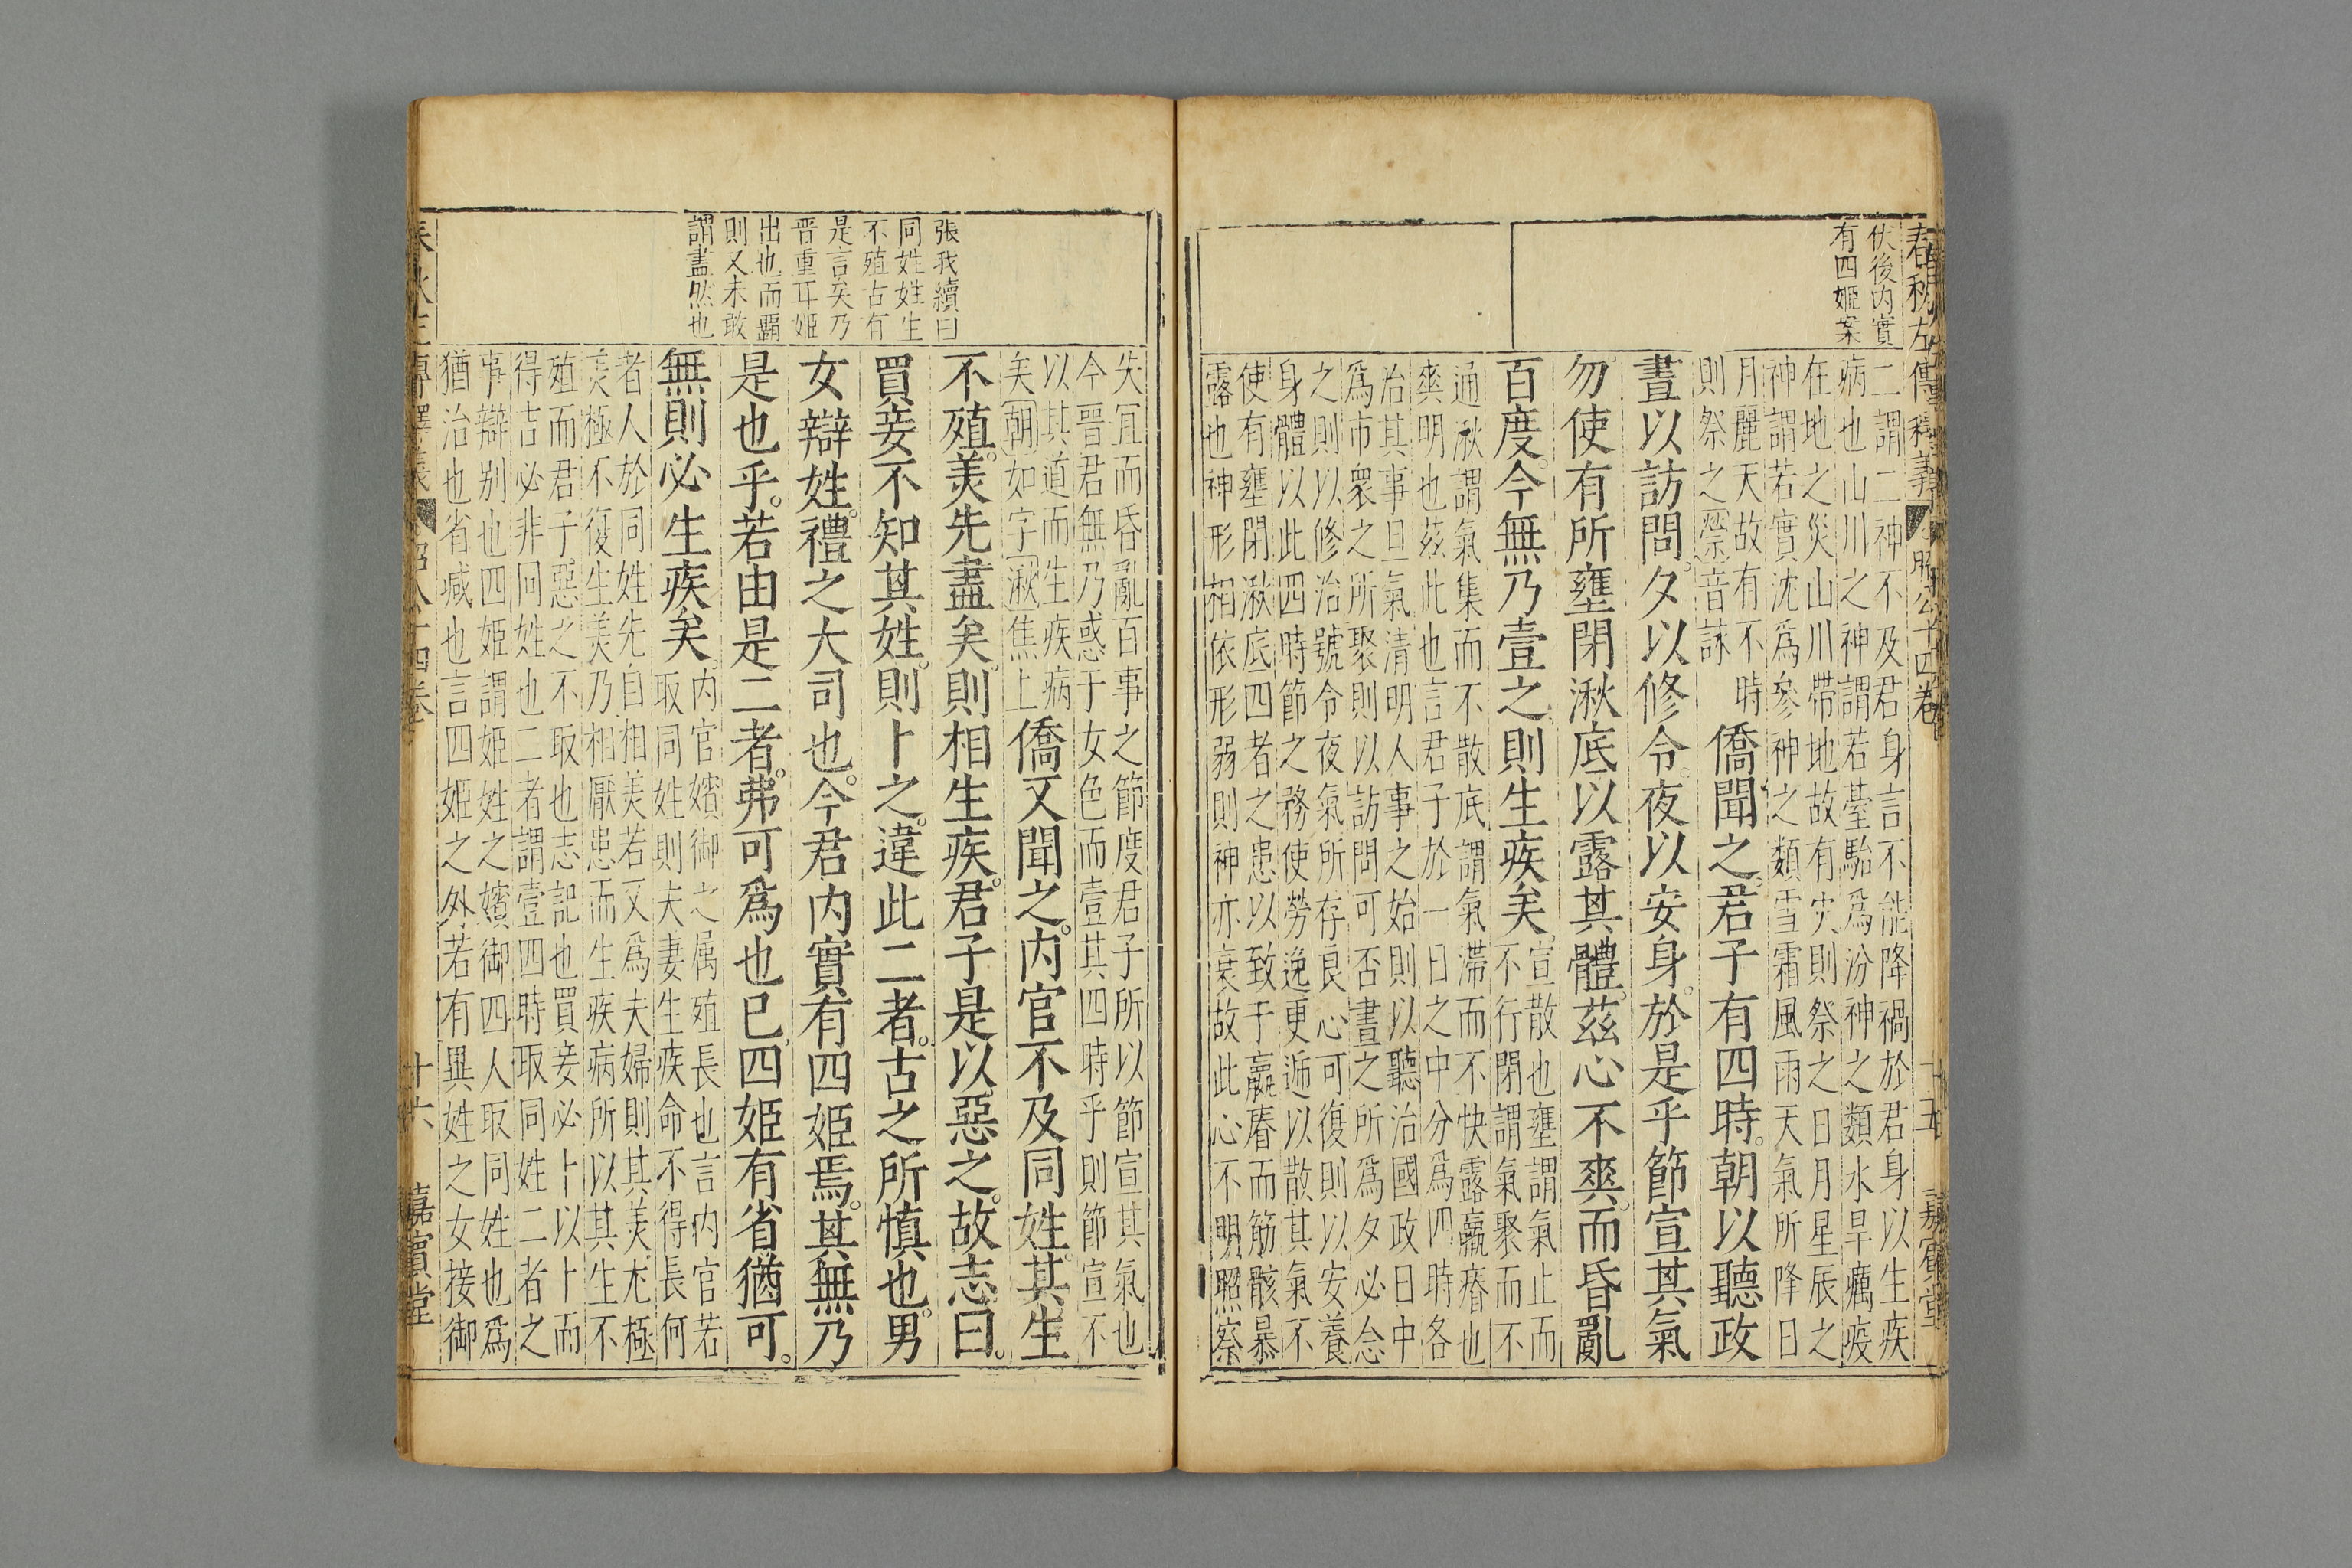 春秋左傳釋義 昭公十四卷 十五 嘉賓堂
伏後内實
有四姬案
二謂二神不及君身言不能降禍於君身以生疾
病也山川之神謂若臺駘爲汾神之類水旱癘疫
在地之災山川帶地故有灾則祭之日月星辰之
神謂若實沈爲參神之類雪霜風雨天氣所降日
月麗天故有不時
則祭之禜音詠
僑聞之君子有四時。朝以聽政
晝以訪問。夕以修令。夜以安身。於是乎節宣其氣
勿使有所壅閉湫底以露其體。茲心不爽。而昏亂
百度。今無乃壹之。則生疾矣。
宣散也壅謂氣止而
不行閉謂氣聚而不
通湫謂氣集而不散底謂氣滯而不快露羸瘠也
爽明也茲此也言君子於一日之中分爲四時各
治其事旦氣清明人事之始則以聽治國政日中
爲市衆之所聚則以訪問可否晝之所爲夕必念
之則以修治號令夜氣所存良心可復則以安養
身體以此四時節之務使勞逸更遞以散其氣不
使有壅閉湫底四者之患以致于羸瘠而筋骸暴
露也神形相依形弱則神亦衰故此心不明照察
失宜而昏亂百事之節度君子所以節宣其氣也
今晉君無乃惑于女色而壹其四時乎則節宣不
以其道而生疾病
矣朝如字湫焦上
僑又聞之。内官不及同姓。其生
不殖。美先盡矣。則相生疾。君子是以惡之。故志曰。
買妾不知其姓。則卜之。違此二者。古之所慎也。男
女辯姓。禮之大司也。今君内實有四姬焉。其無乃
是也乎。若由是二者。弗可爲也已。四姬有省猶可。
無則必生疾矣。
内官嬪御之属殖長也言内官若
取同姓則夫妻生疾命不得長何
者人於同姓先自相美若又爲夫婦則其美尤極
美極不復生美乃相厭患而生疾病所以其生不
殖而君子惡之不取也志記也買妾必卜以卜而
得吉必非同姓也二者謂壹四時取同姓二者之
事辯别也四姬謂姬姓之嬪御四人取同姓也爲
猶治也省減也言四姬之外若有異姓之女接御
張我續曰
同姓姓生
不殖古有
是言矣乃
晉重耳姬
出也而霸
則又未敢
謂盡然也
十六 嘉賓堂